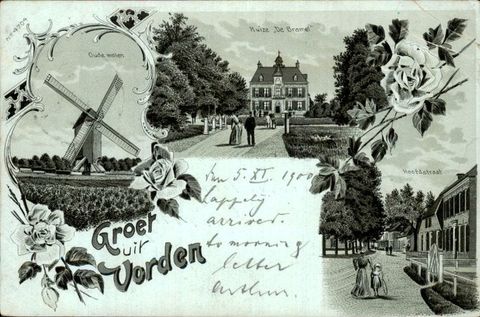 Oude molen
Huize „De Bramel"
Hoofdstraat
Groet
uit
Vorden
5. XI. 1900
happily
arrived.
to morning
letter
Arthur.